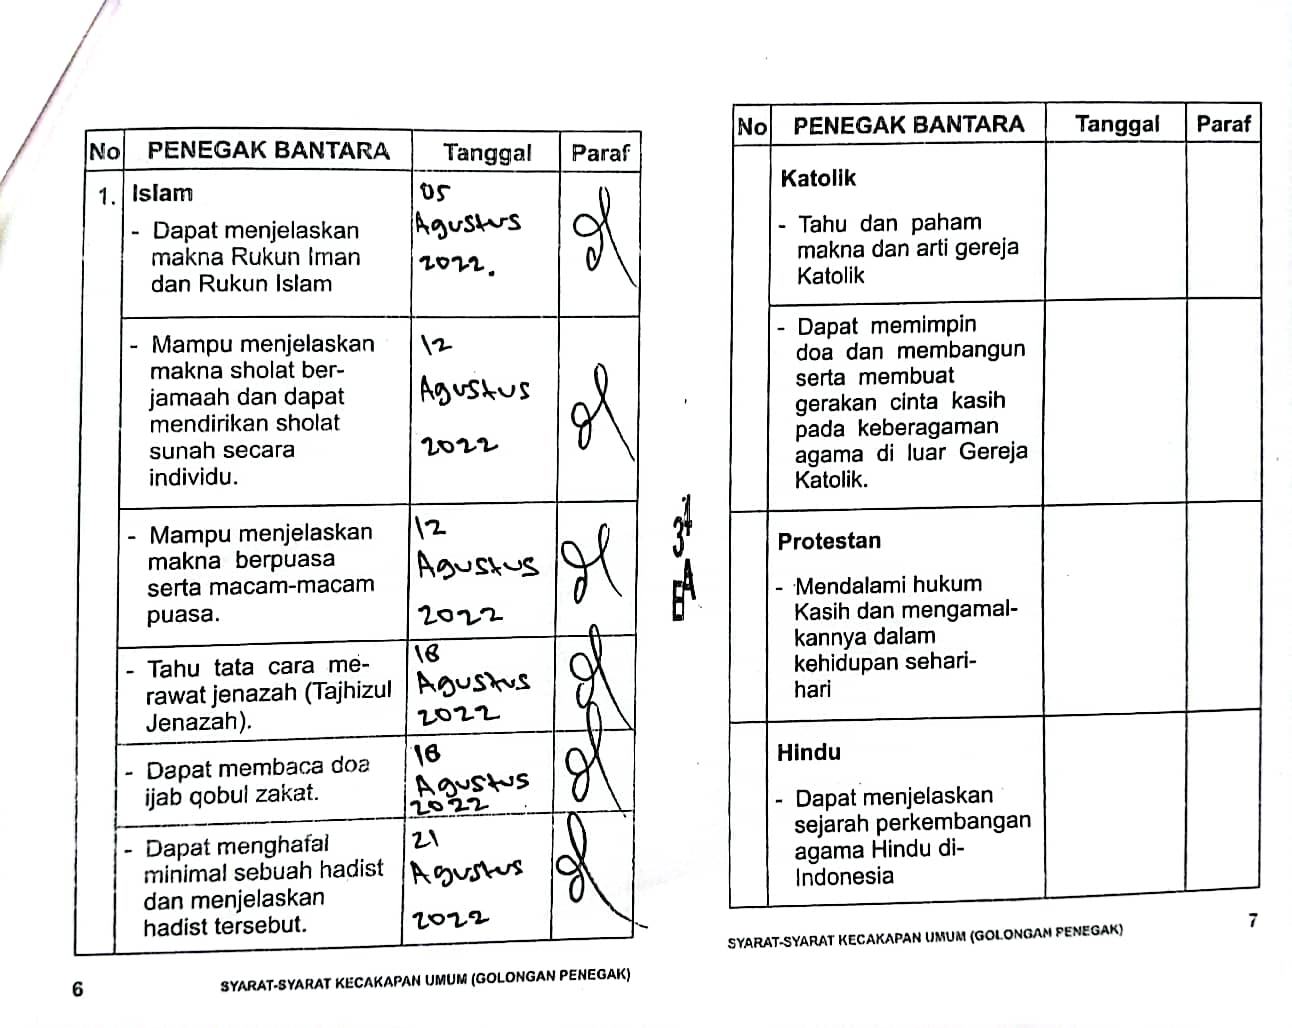 No PENEGAK BANTARA Tanggal Paraf
1. Islam
- Dapat menjelaskan
makna Rukun Iman
dan Rukun Islam
05
Agustus
2022.
- Mampu menjelaskan
makna sholat ber-
jamaah dan dapat
mendirikan sholat
sunah secara
individu.
12
Agustus
2022
- Mampu menjelaskan
makna berpuasa
serta macam-macam
puasa.
12
Agustus
2022
- Tahu tata cara me-
rawat jenazah (Tajhizul
Jenazah).
18
Agustus
2022
- Dapat membaca doa
ijab qobul zakat.
18
Agustus
2022
- Dapat menghafal
minimal sebuah hadist
dan menjelaskan
hadist tersebut.
21
Agustus
2022
6
SYARAT-SYARAT KECAKAPAN UMUM (GOLONGAN PENEGAK)
No PENEGAK BANTARA Tanggal Paraf
Katolik
- Tahu dan paham
makna dan arti gereja
Katolik
- Dapat memimpin
doa dan membangun
serta membuat
gerakan cinta kasih
pada keberagaman
agama di luar Gereja
Katolik.
Protestan
- Mendalami hukum
Kasih dan mengamal-
kannya dalam
kehidupan sehari-
hari
Hindu
- Dapat menjelaskan
sejarah perkembangan
agama Hindu di-
Indonesia
SYARAT-SYARAT KECAKAPAN UMUM (GOLONGAN PENEGAK)
7